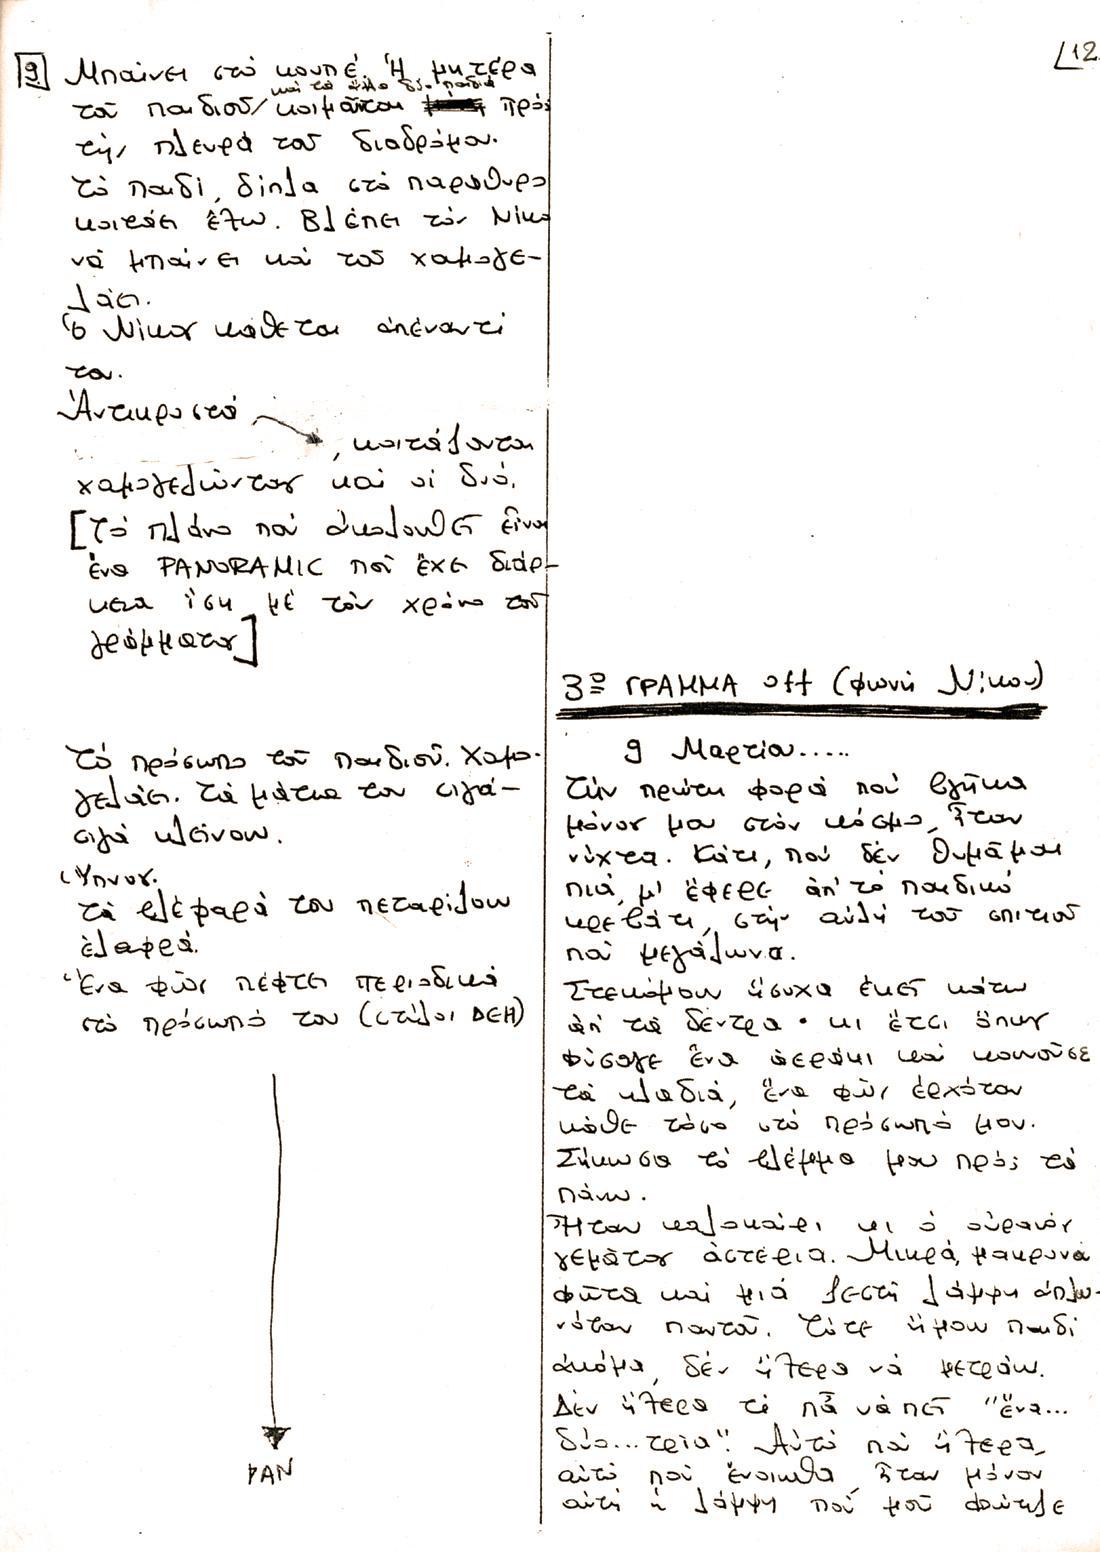 12
9 Μπαίνει στὸ κουπέ. Ἡ μητέρα
καὶ τὰ ἄλλα δύο παιδιὰ
τοῦ παιδιοῦ / κοιμᾶται πρὸς
τὴν πλευρὰ τοῦ διαδρόμου.
Τὸ παιδί, δίπλα στὸ παράθυρο
κοιτάει ἔξω. Βλέπει τὸν Νίκο
νὰ μπαίνει καὶ τοῦ χαμογε-
λάει.
Ὁ Νίκος κάθεται ἀπέναντί
του.
Ἀντικρυστὰ
, κοιτάζονται
χαμογελώντας καὶ οἱ δυό.
[Τὸ πλάνο ποὺ ἀκολουθεῖ εἶναι
ἕνα PANORAMIC ποὺ ἔχει διάρ-
κεια ἴση μὲ τὸν χρόνο τοῦ
γράμματος]
Τὸ πρόσωπο τοῦ παιδιοῦ. Χαμο-
γελάει. Τὰ μάτια του σιγά-
σιγὰ κλείνουν.
Ὕπνος.
Τὰ βλέφαρά του πεταρίζουν
ἐλαφρά.
Ἕνα φῶς πέφτει περιοδικὰ
στὸ πρόσωπό του (στύλοι ΔΕΗ)
PAN
3ο ΓΡΑΜΜΑ off (φωνὴ Νίκου)
9 Μαρτίου.....
Τὴν πρώτη φορὰ ποὺ βγῆκα
μόνος μου στὸν κόσμο, ἦταν
νύχτα. Κάτι, ποὺ δὲν θυμᾶμαι
πιά, μ' ἔφερε ἀπ' τὸ παιδικὸ
κρεβάτι, στὴν αὐλὴ τοῦ σπιτιοῦ
ποὺ μεγάλωνα.
Στεκόμουν ἥσυχα ἐκεῖ κάτω
ἀπ' τὰ δέντρα · κι ἔτσι ὅπως
φύσαγε ἕνα ἀεράκι καὶ κουνοῦσε
τὰ κλαδιά, ἕνα φῶς ἐρχόταν
κάθε τόσο στὸ πρόσωπό μου.
Σήκωσα τὸ βλέμμα μου πρὸς τὰ
πάνω.
Ἦταν καλοκαίρι κι ὁ οὐρανὸς
γεμάτος ἀστέρια. Μικρά, μακρυνὰ
φῶτα καὶ μιὰ ζεστὴ λάμψη ἁπλω-
νόταν παντοῦ. Τότε ἤμουν παιδὶ
ἀκόμα, δὲν ἤξερα νὰ μετράω.
Δὲν ἤξερα τί πᾶ νὰ πεῖ "ἕνα...
δύο... τρία". Αὐτὸ ποὺ ἤξερα,
αὐτὸ ποὺ ἔνοιωθα, ἦταν μόνον
αὐτὴ ἡ λάμψη ποὺ μοῦ φώτιζε